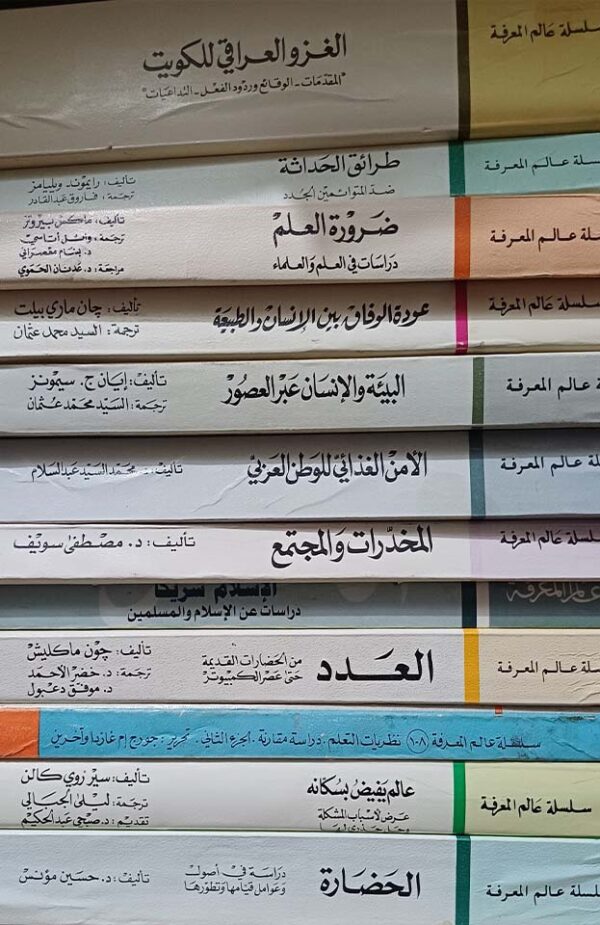 سلسلة عالم المعرفة
الغزو العراقي للكويت
"المقدمات - الوقائع وردود الفعل - التداعيات"
سلسلة عالم المعرفة
طرائق الحداثة
ضد المتوائمين الجدد
تأليف: رايموند ويليامز
ترجمة: فاروق عبدالقادر
سلسلة عالم المعرفة
ضرورة العلم
دراسات في العلم والعلماء
تأليف: ماكس بيروتز
ترجمة: وائل أتاسي
د. بسام معصراني
مراجعة: د. عدنان الحموي
سلسلة عالم المعرفة
عودة الوفاق بين الإنسان والطبيعة
تأليف: چان ماري بيلت
ترجمة: السيد محمد عثمان
سلسلة عالم المعرفة
البيئة والإنسان عبر العصور
تأليف: إيان ج. سيمونز
ترجمة: السيد محمد عثمان
سلسلة عالم المعرفة
الأمن الغذائي للوطن العربي
تأليف: محمد السيد عبدالسلام
سلسلة عالم المعرفة
المخدرات والمجتمع
تأليف: د. مصطفى سويف
عالم المعرفة
الإسلام شريكا
دراسات عن الإسلام والمسلمين
سلسلة عالم المعرفة
العدد
من الحضارات القديمة
حتى عصر الكمبيوتر
تأليف: چون ماكليش
ترجمة: د. خضر الأحمد
د. موفق دعبول
سلسلة عالم المعرفة ١٠٨ نظريات التعلم. دراسة مقارنة. الجزء الثاني. تحرير: جورج إم غازدا وآخرين
سلسلة عالم المعرفة
عالم يفيض بسكانه
عرض لأسباب المشكلة
تأليف: سير روي كالن
ترجمة: ليلى الجبالي
تقديم: د. صبحي عبدالحكيم
سلسلة عالم المعرفة
الحضارة
دراسة في أصول
وعوامل قيامها وتطورها
تأليف: د. حسين مؤنس